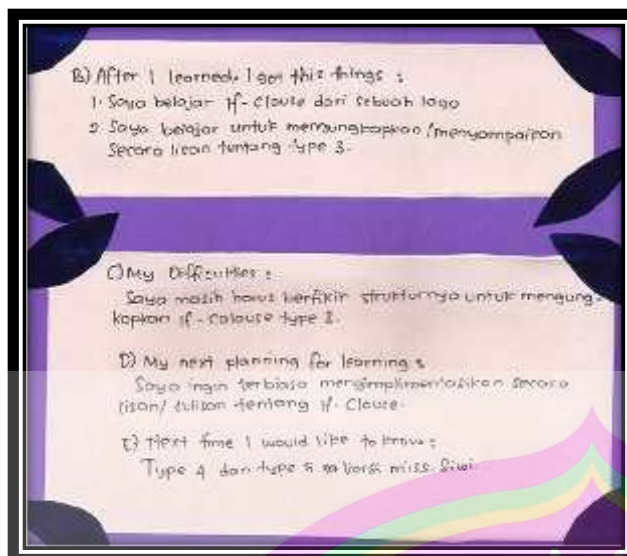 B) After I learned, I got this things :
1. Saya belajar If - Clause dari sebuah lagu
2. Saya belajar untuk mengungkapkan / menyampaikan
secara lisan tentang type 3.
C) My Difficulties :
Saya masih harus berfikir strukturnya untuk mengung-
kapkan if - Calause type 3.
D) My next planning for learning :
Saya ingin terbiasa mengimplimentasikan secara
lisan / tulisan tentang If - Clause.
E) Next time I would like to know :
Type 4 dan type 5 versi miss. Siwi.